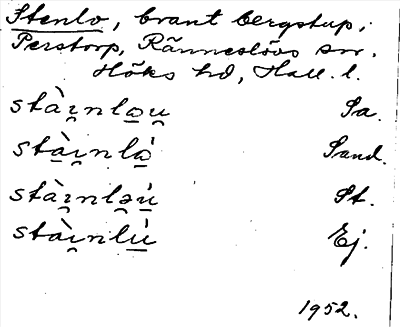 Stenlo, brant bergstup i
Perstorp, Ränneslövs sn.
Höks hd, Hall. l.
stài̯nlə̯u̯ Sa.
stài̯nlà̯ Sand.
stài̯nlə̯ù̯ St.
stài̯nlù̱ Ej.
1952.